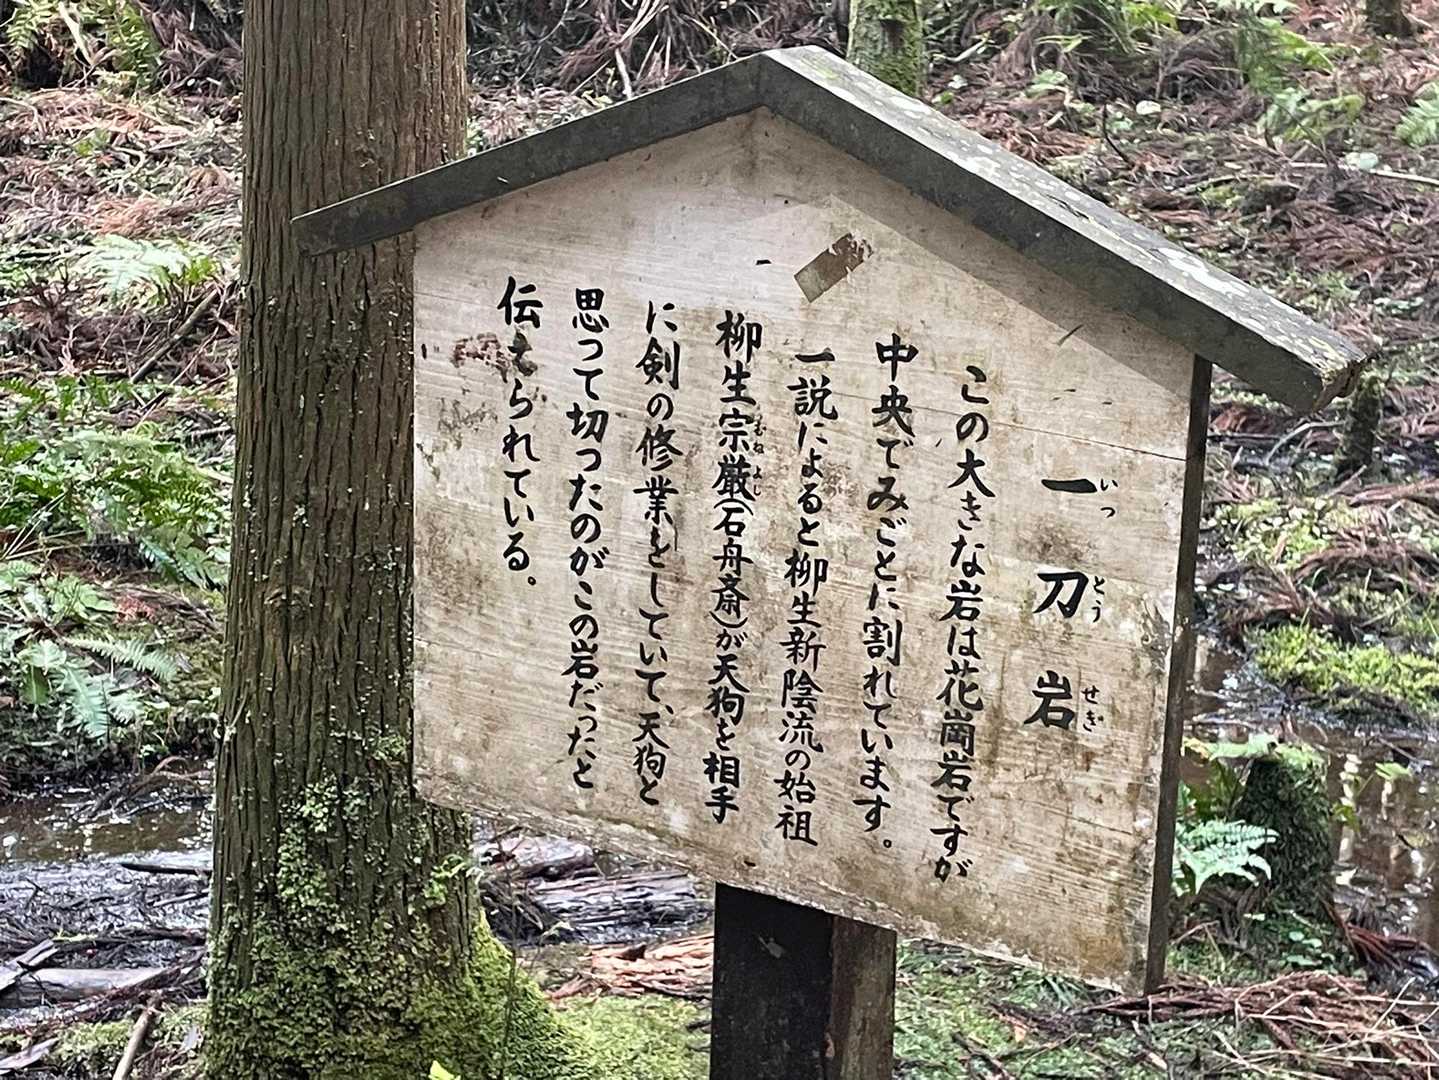 一刀岩
いっ とう せぎ
この大きな岩は花崗岩ですが
中央でみごとに割れています。
一説によると柳生新陰流の始祖
柳生宗厳(石舟斎)が天狗を相手
むねよし
に剣の修業をしていて、天狗と
思って切ったのがこの岩だったと
伝えられている。